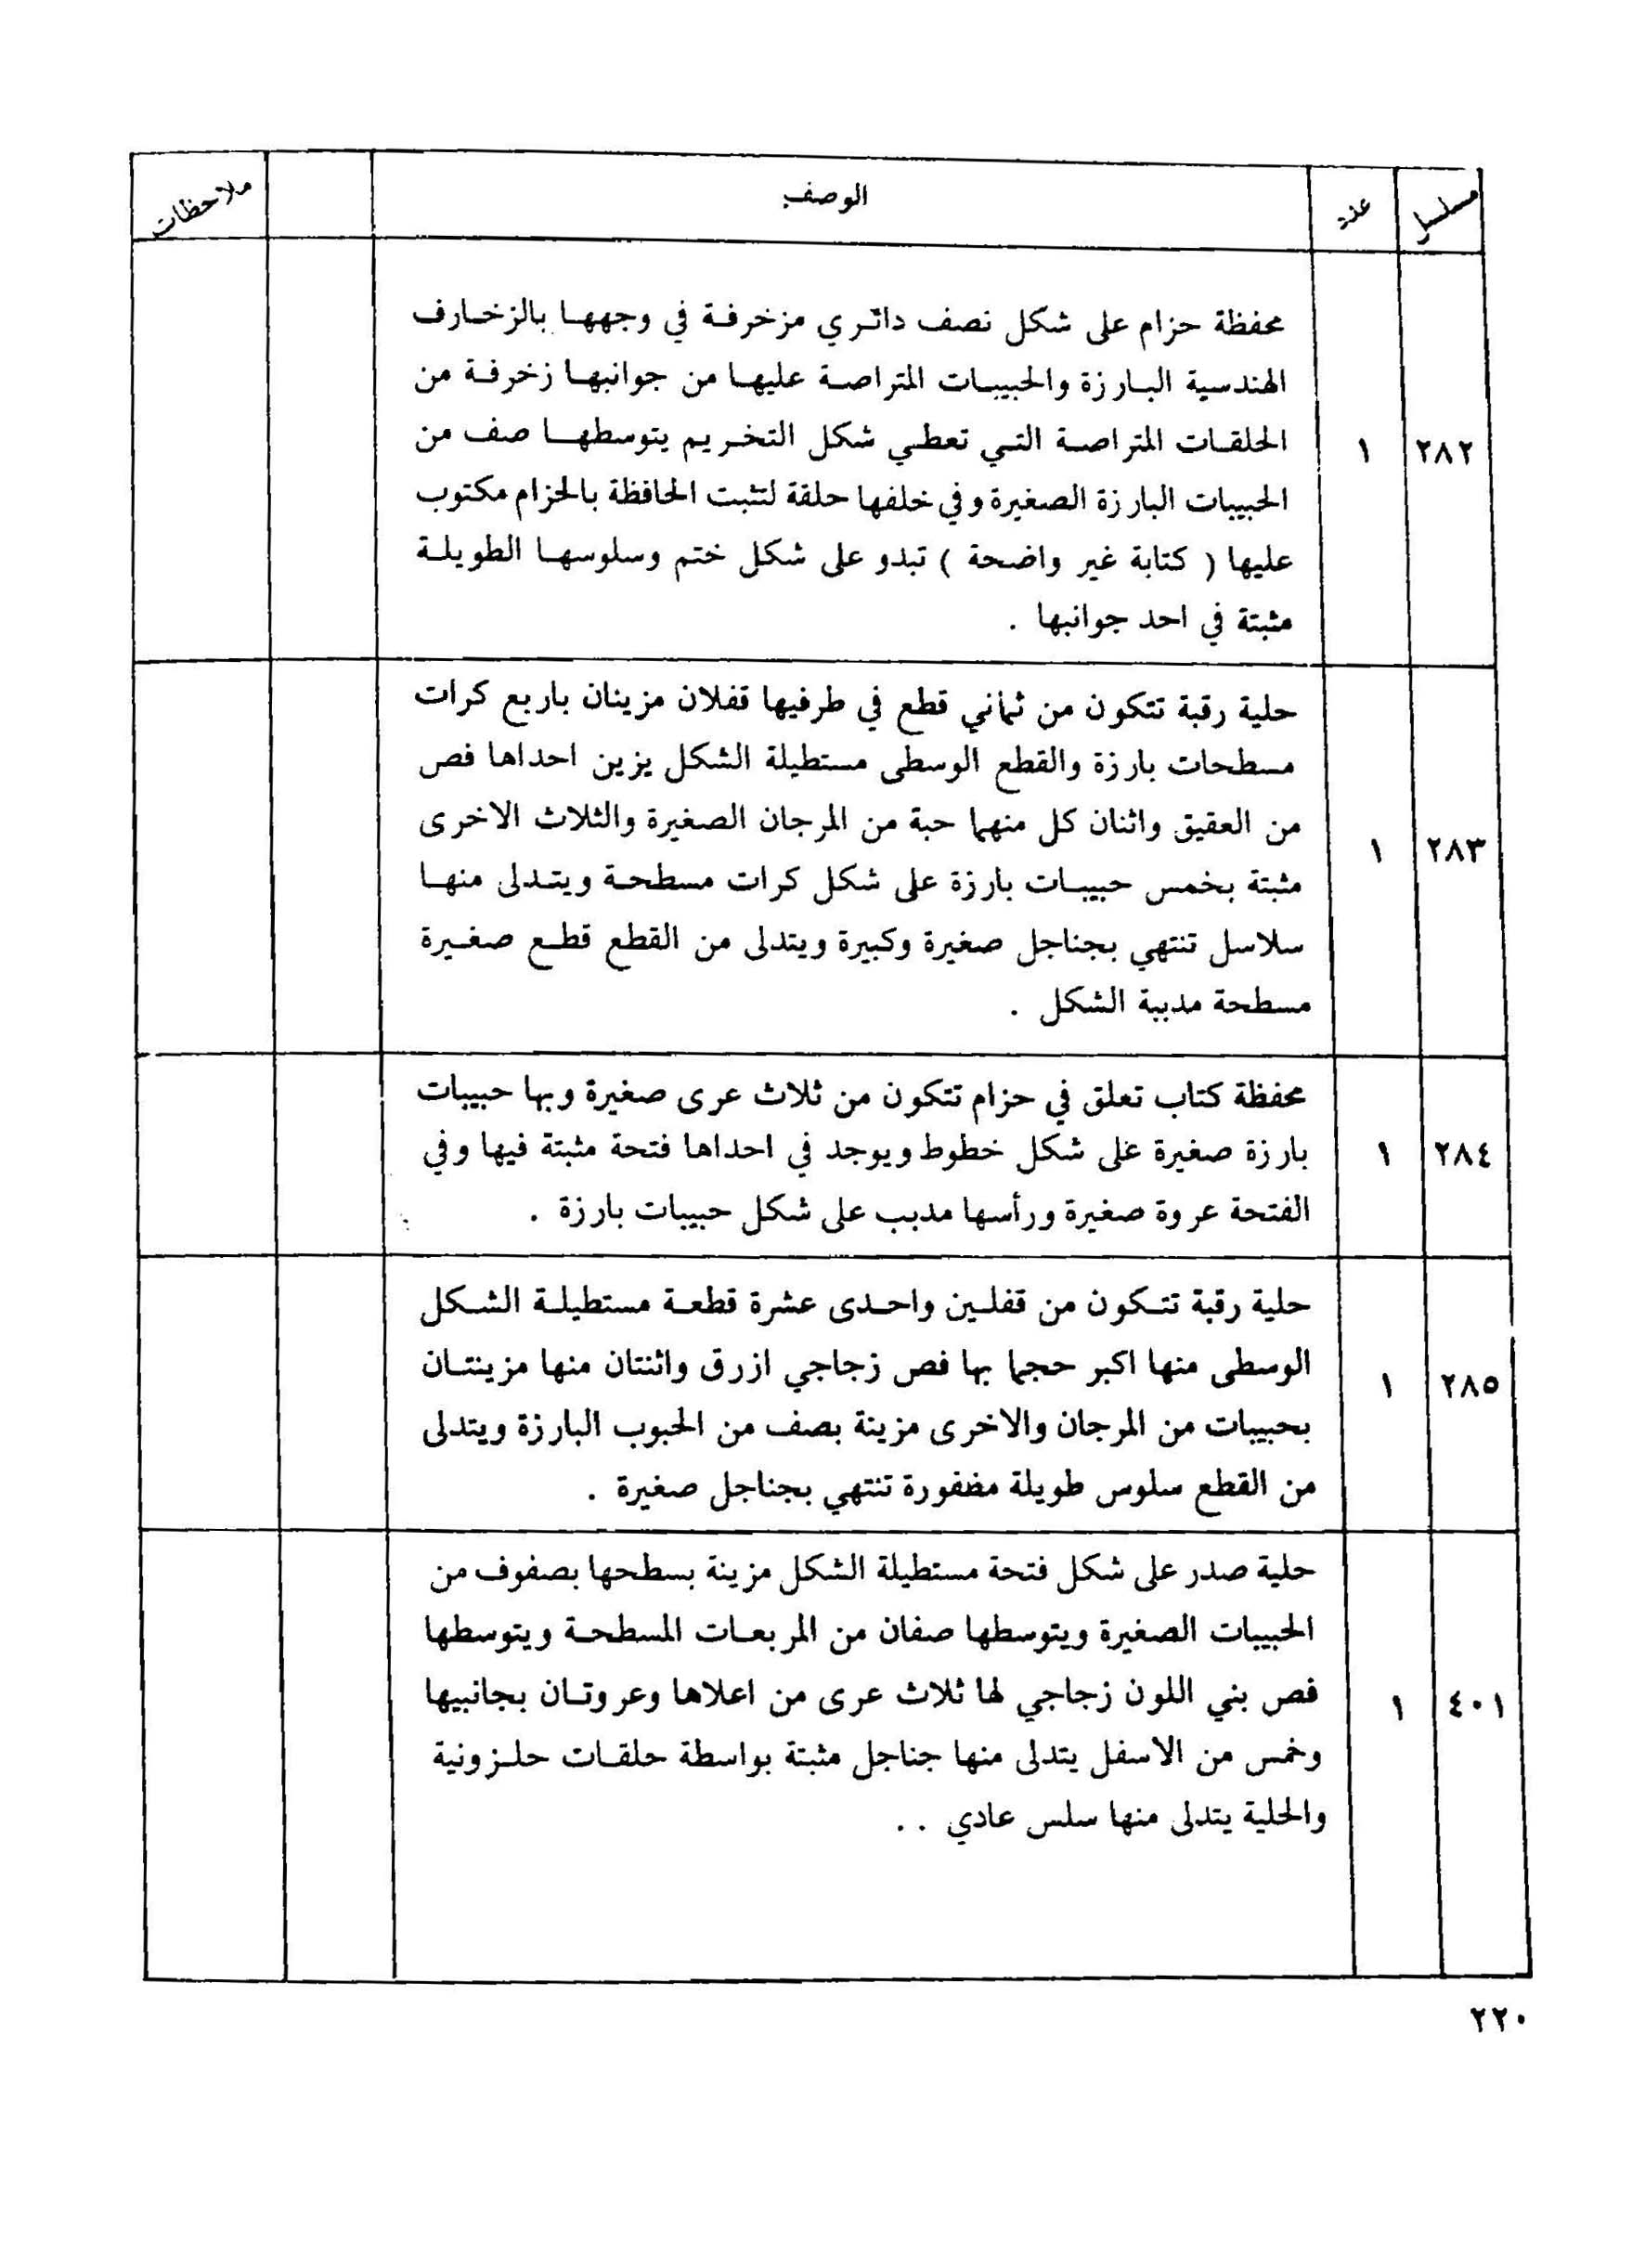 مسلسل عدد الوصف ملاحظات
محفظة حزام على شكل نصف دائري مزخرفة في وجهها بالزخارف
الهندسية البارزة والحبيبات المتراصة عليها من جوانبها زخرفة من
الحلقات المتراصة التي تعطي شكل التخريم يتوسطها صف من
٢٨٢ ١
الحبيبات البارزة الصغيرة وفي خلفها حلقة لتثبت الحافظة بالحزام مكتوب
عليها ( كتابة غير واضحة ) تبدو على شكل ختم وسلوسها الطويلة
مثبتة في احد جوانبها .
حلية رقبة تتكون من ثماني قطع في طرفيها قفلان مزينان باربع كرات
مسطحات بارزة والقطع الوسطى مستطيلة الشكل يزين احداها فص
من العقيق واثنان كل منهما حبة من المرجان الصغيرة والثلاث الاخرى
٢٨٣ ١
مثبتة بخمس حبيبات بارزة على شكل كرات مسطحة ويتدلى منها
سلاسل تنتهي بجناجل صغيرة وكبيرة ويتدلى من القطع قطع صغيرة
مسطحة مدببة الشكل .
محفظة كتاب تعلق في حزام تتكون من ثلاث عرى صغيرة وبها حبيبات
٢٨٤ ١
بارزة صغيرة على شكل خطوط ويوجد في احداها فتحة مثبتة فيها وفي
الفتحة عروة صغيرة ورأسها مدبب على شكل حبيبات بارزة .
حلية رقبة تتكون من قفلين واحدى عشرة قطعة مستطيلة الشكل
الوسطى منها اكبر حجما بها فص زجاجي ازرق واثنتان منها مزينتان
٢٨٥ ١
بحبيبات من المرجان والاخرى مزينة بصف من الحبوب البارزة ويتدلى
من القطع سلوس طويلة مضفورة تنتهي بجناجل صغيرة .
حلية صدر على شكل فتحة مستطيلة الشكل مزينة بسطحها بصفوف من
الحبيبات الصغيرة ويتوسطها صفان من المربعات المسطحة ويتوسطها
فص بني اللون زجاجي لها ثلاث عرى من اعلاها وعروتان بجانبيها
٤٠١ ١
وخمس من الاسفل يتدلى منها جناجل مثبتة بواسطة حلقات حلزونية
والحلية يتدلى منها سلس عادي . .
٢٢٠